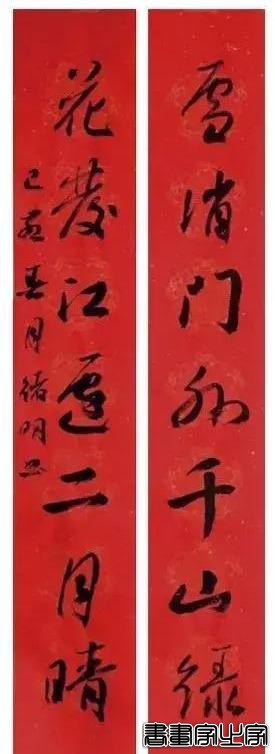 雪消门外千山绿
花發江邊二月晴
己亥春月绪明书
書畫家之家